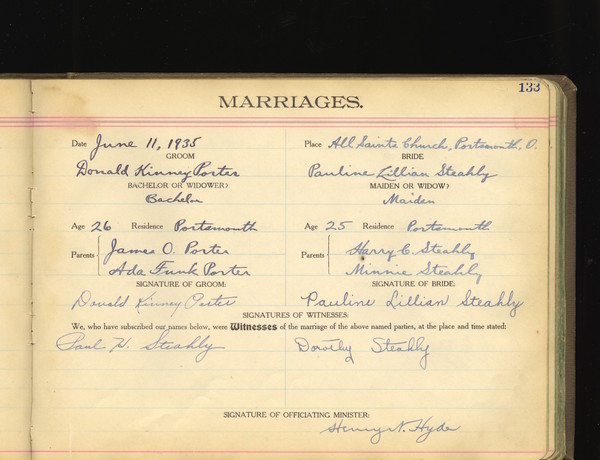 133
MARRIAGES.
Date June 11, 1935 Place All Saints Church, Portsmouth, O.
GROOM BRIDE
Donald Kinney Porter Pauline Lillian Steahly
BACHELOR OR WIDOWER? MAIDEN OR WIDOW?
Bachelor Maiden
Age 26 Residence Portsmouth Age 25 Residence Portsmouth
Parents James O. Porter Parents Harry C. Steahly
Ada Funk Porter Minnie Steahly
SIGNATURE OF GROOM: SIGNATURE OF BRIDE:
Donald Kinney Porter Pauline Lillian Steahly
SIGNATURES OF WITNESSES:
We, who have subscribed our names below, were Witnesses of the marriage of the above named parties, at the place and time stated:
Paul H. Steahly Dorothy Steahly
SIGNATURE OF OFFICIATING MINISTER:
Henry N. Hyde